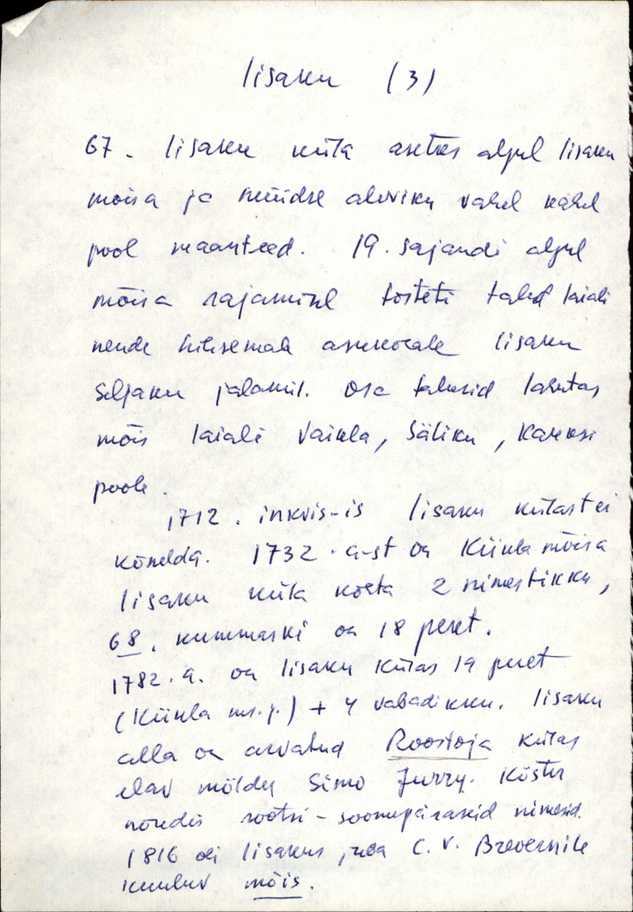 Iisaku (3)
67. Iisaku küla asetses algul Iisaku
mõisa ja nüüdse aleviku vahel kahel
pool maanteed. 19. sajandi algul
mõisa rajamisel tõsteti talud laiali
nende hilisemale asukohale Iisaku
Seljaku jalamil. Osa talusid lahutas
mõis laiali Vaikla, Säliku, Kareksi
poole.
1712. inkvis-is Iisaku külast ei
kõnelda. 1732. a-st on Kiikla mõisa
Iisaku küla kohta 2 nimestikku,
68. kummaski on 18 peret.
1782. a. on Iisaku külas 19 peret
(Kiikla ms.j.) + 4 vabadikku. Iisaku
alla on arvatud Roostoja külas
elav mölder Simo Jurry. Köster
noudis rootsi-soomepäraseid nimesid.
1816 oli Iisakus juba C. v. Brevernile
kuuluv mõis.